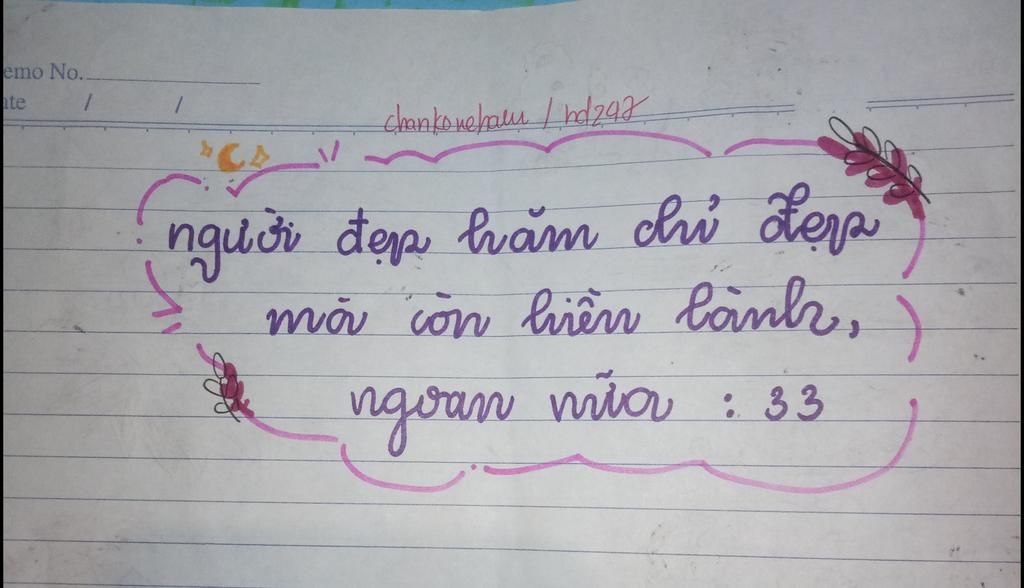 emo No.
ate / /
chankonehaeu / hd247
người đẹp hăm chỉ đẹp
mà còn hiền lành,
ngoan nữa : 33